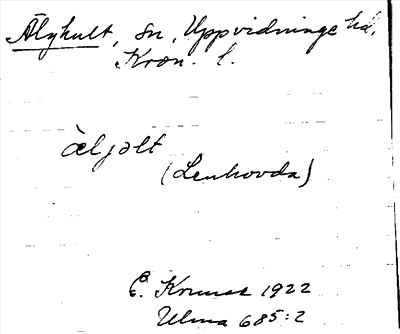 Älghult, sn, Uppvidinge hd,
Kron. l.
àljəlt
(Lenhovda)
E. 1922
Ulma 685:2